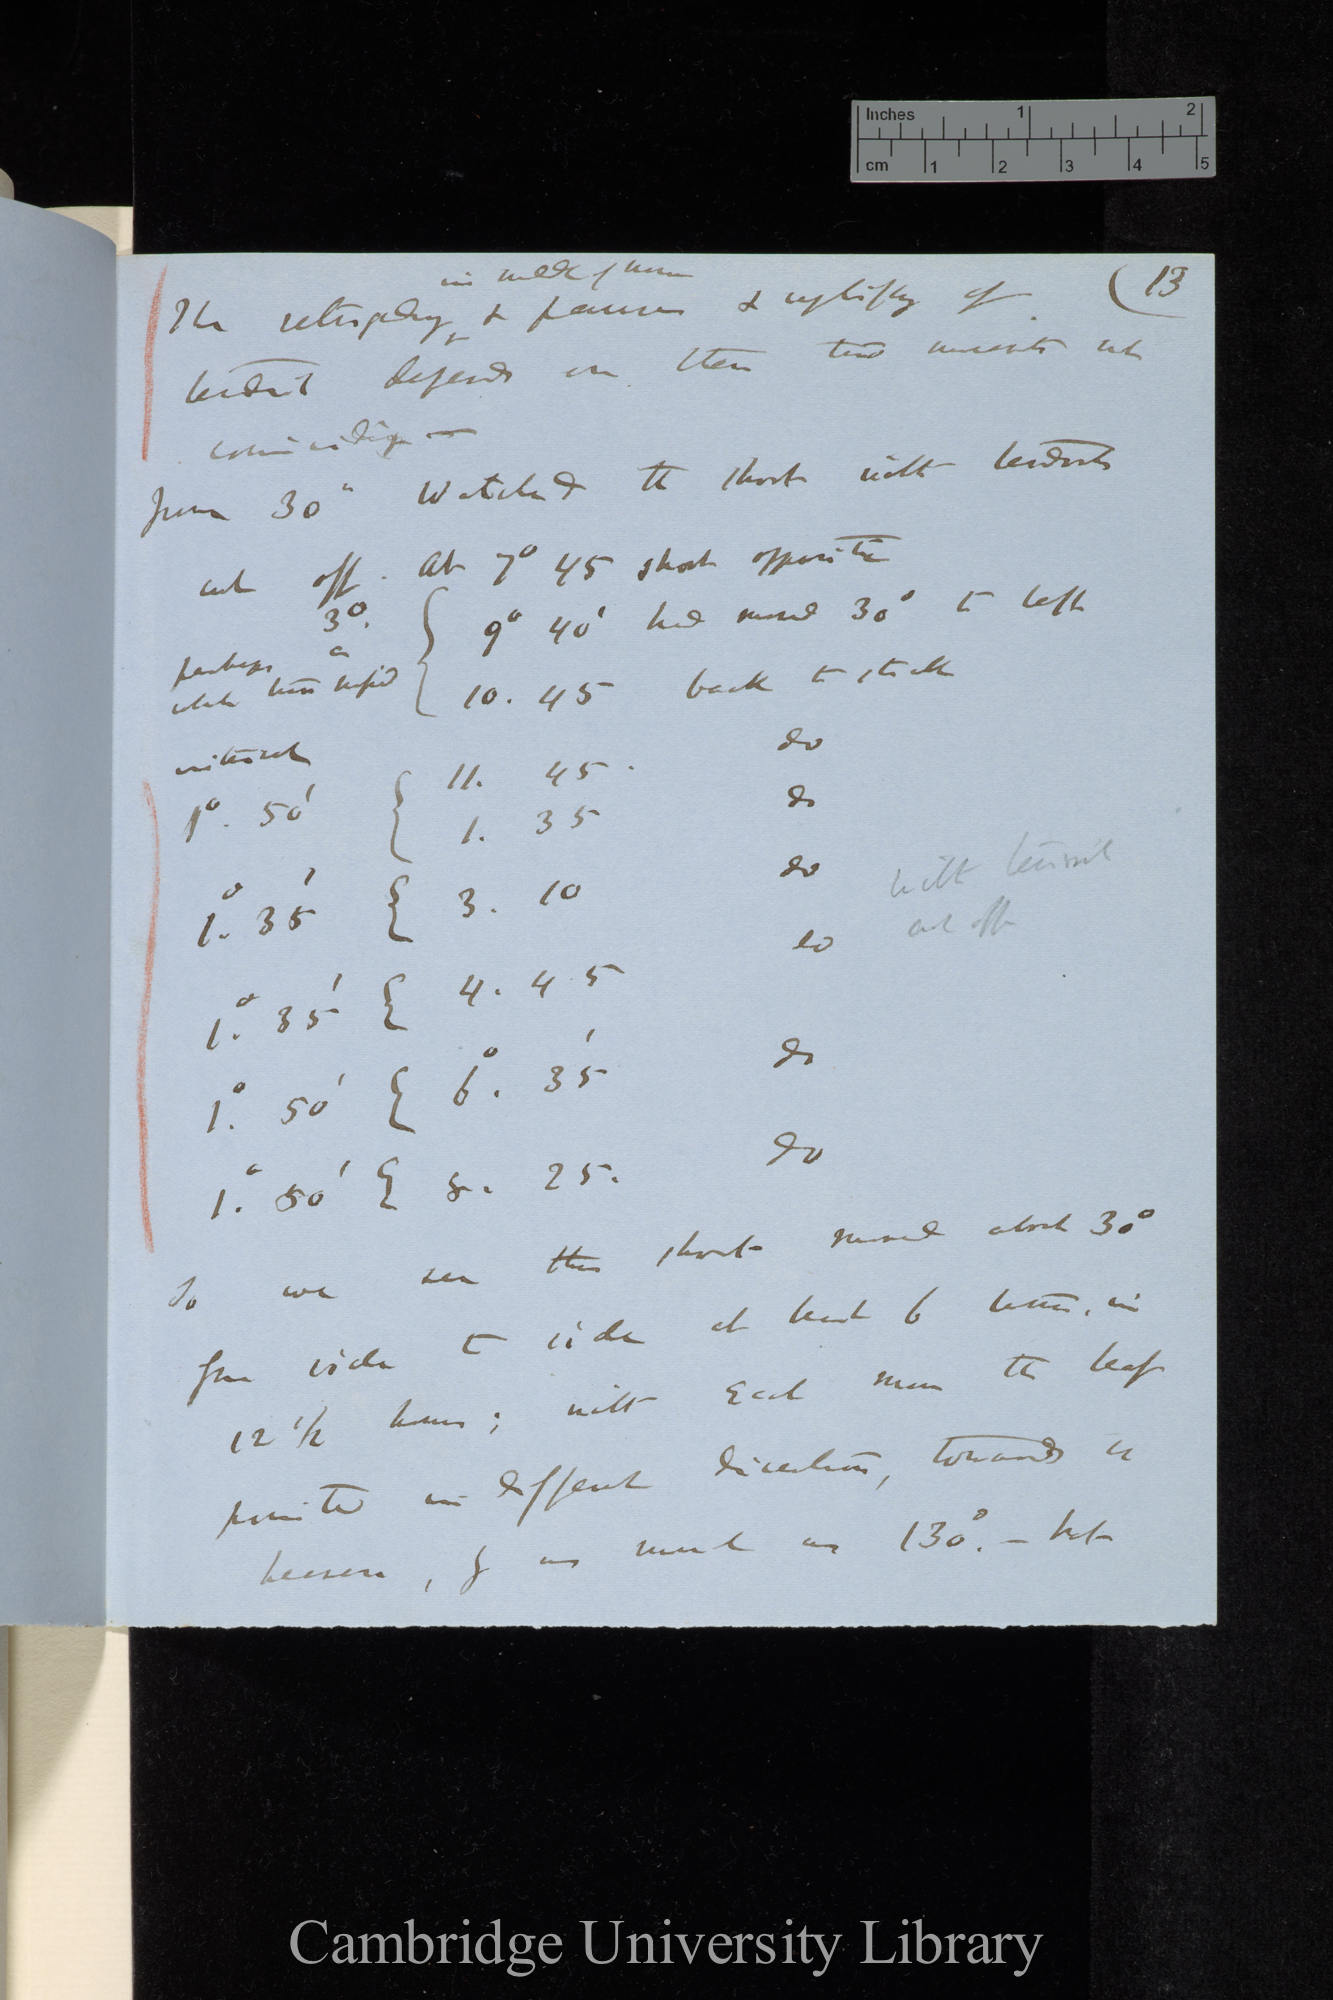 Inches 1 2
cm 1 2 3 4 5
(13
The & pauses & of
tendril depends on these two movements not
coinciding —
June 30" Watched the shoot with tendrils
cut off. At 7° 45 shoot opposite
3°. 9° 40' had moved 30° to left
perhaps a
10. 45 back to stick
11. 45. do
1°. 50' 1. 35 do
1°. 35' 3. 10 do
with tendril
cut off
1°. 35' 4. 45 do
1°. 50' 6°. 35' do
1°. 50' 8. 25. do
So we see this shoot moved about 30°
from side to side at least 6 times in
12 1/2 hours; with each move the leaf
pointed in different directions, towards
heavens, & as much as 130°. —
Cambridge University Library